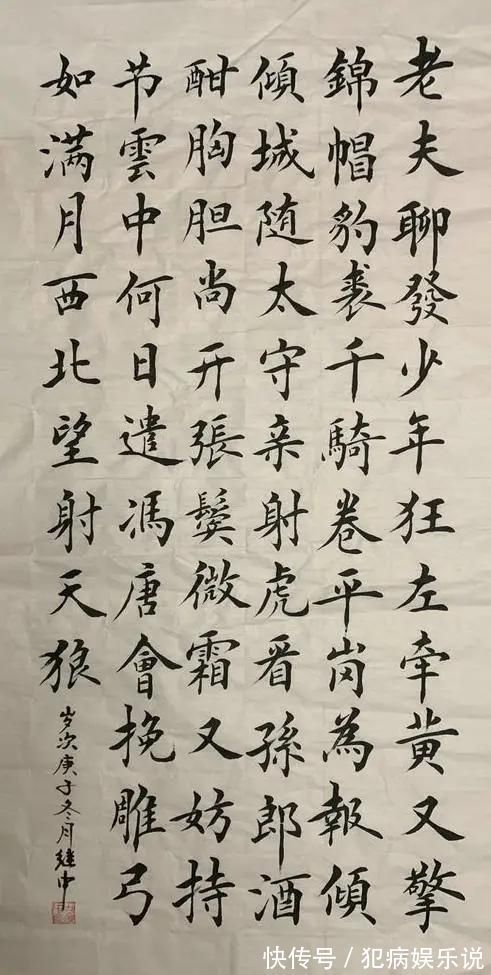 老夫聊發少年狂左牵黄又擎
錦帽豹裘千騎卷平岗為報傾
傾城随太守亲射虎看孫郎酒
酣胸胆尚开張鬓微霜又妨持
节雲中何日遣馮唐會挽雕弓
如满月西北望射天狼
岁次庚子冬月继中
快传号/犯病娱乐说